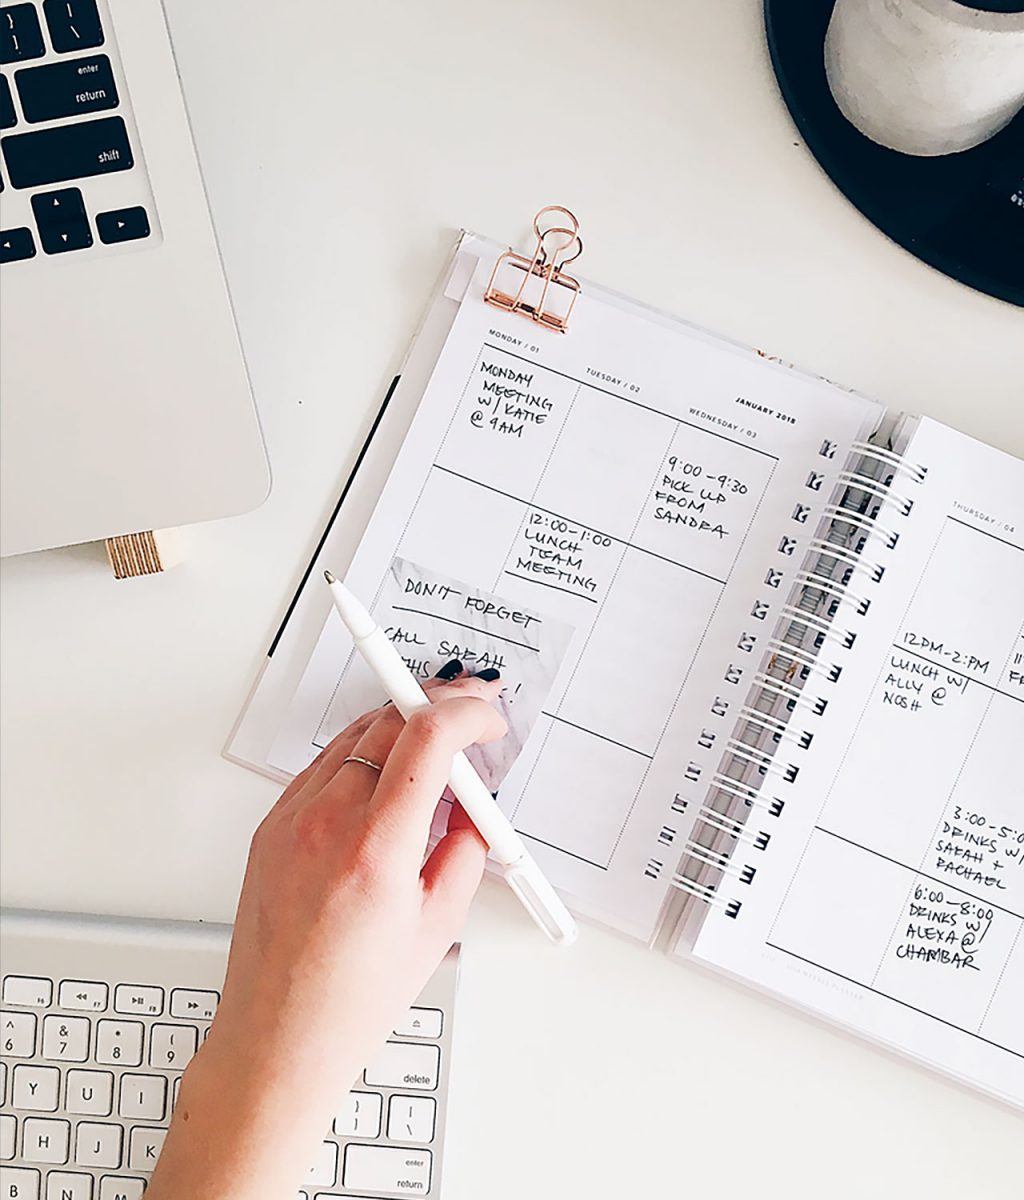 }
]
|
\
enter
return
shift
MONDAY / 01
TUESDAY / 02
JANUARY 2018
WEDNESDAY / 03
MONDAY
MEETING
W/ KATIE
@ 9AM
9:00-9:30
PICK UP
FROM
SANDRA
12:00-1:00
LUNCH
TEAM
MEETING
DON'T FORGET
CALL SARAH
!
THURSDAY / 04
12PM-2:PM
LUNCH W/
ALLY @
NOSH
3:00-5:0
DRINKS W/
SARAH +
RACHAEL
6:00-8:00
DRINKS W/
ALEXA @
CHAMBAR
F6
F7
F8
F9
^
6
&
7
*
8
(
9
delete
Y
U
I
}
|
\
H
J
K
enter
return
B
N
M
,